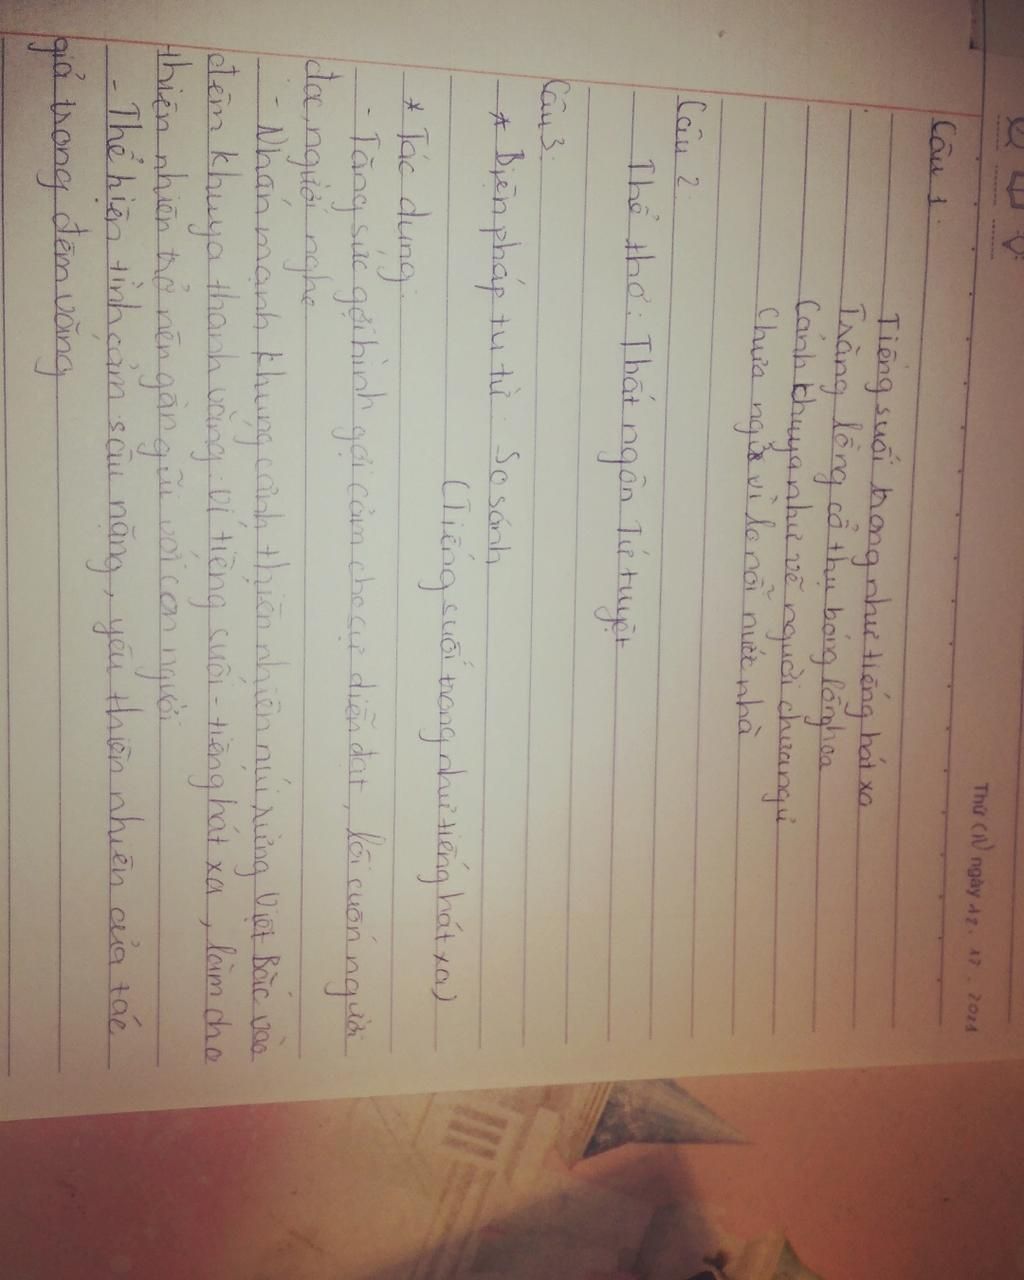 Thứ CN ngày 12. 12. 2021
Câu 1:
Tiếng suối trong như tiếng hát xa
Trăng lồng cổ thụ bóng lồng hoa
Cảnh khuya như vẽ người chưa ngủ
Chưa ngủ vì lo nỗi nước nhà
Câu 2:
Thể thơ: Thất ngôn Tứ tuyệt
Câu 3:
* Biện pháp tu từ: So sánh
(Tiếng suối trong như tiếng hát xa)
* Tác dụng:
- Tăng sức gợi hình gợi cảm cho sự diễn đạt, lôi cuốn người
đọc, người nghe
- Nhấn mạnh khung cảnh thiên nhiên núi rừng Việt Bắc vào
đêm khuya thanh vắng: ví tiếng suối - tiếng hát xa, làm cho
thiên nhiên trở nên gần gũi với con người
- Thể hiện tình cảm sâu nặng, yêu thiên nhiên của tác
giả trong đêm vắng